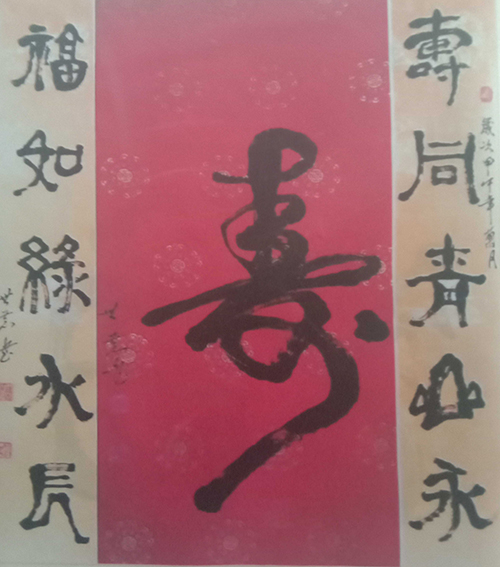 壽同青山永
歲次甲午年夏月
寿
福如綠水長